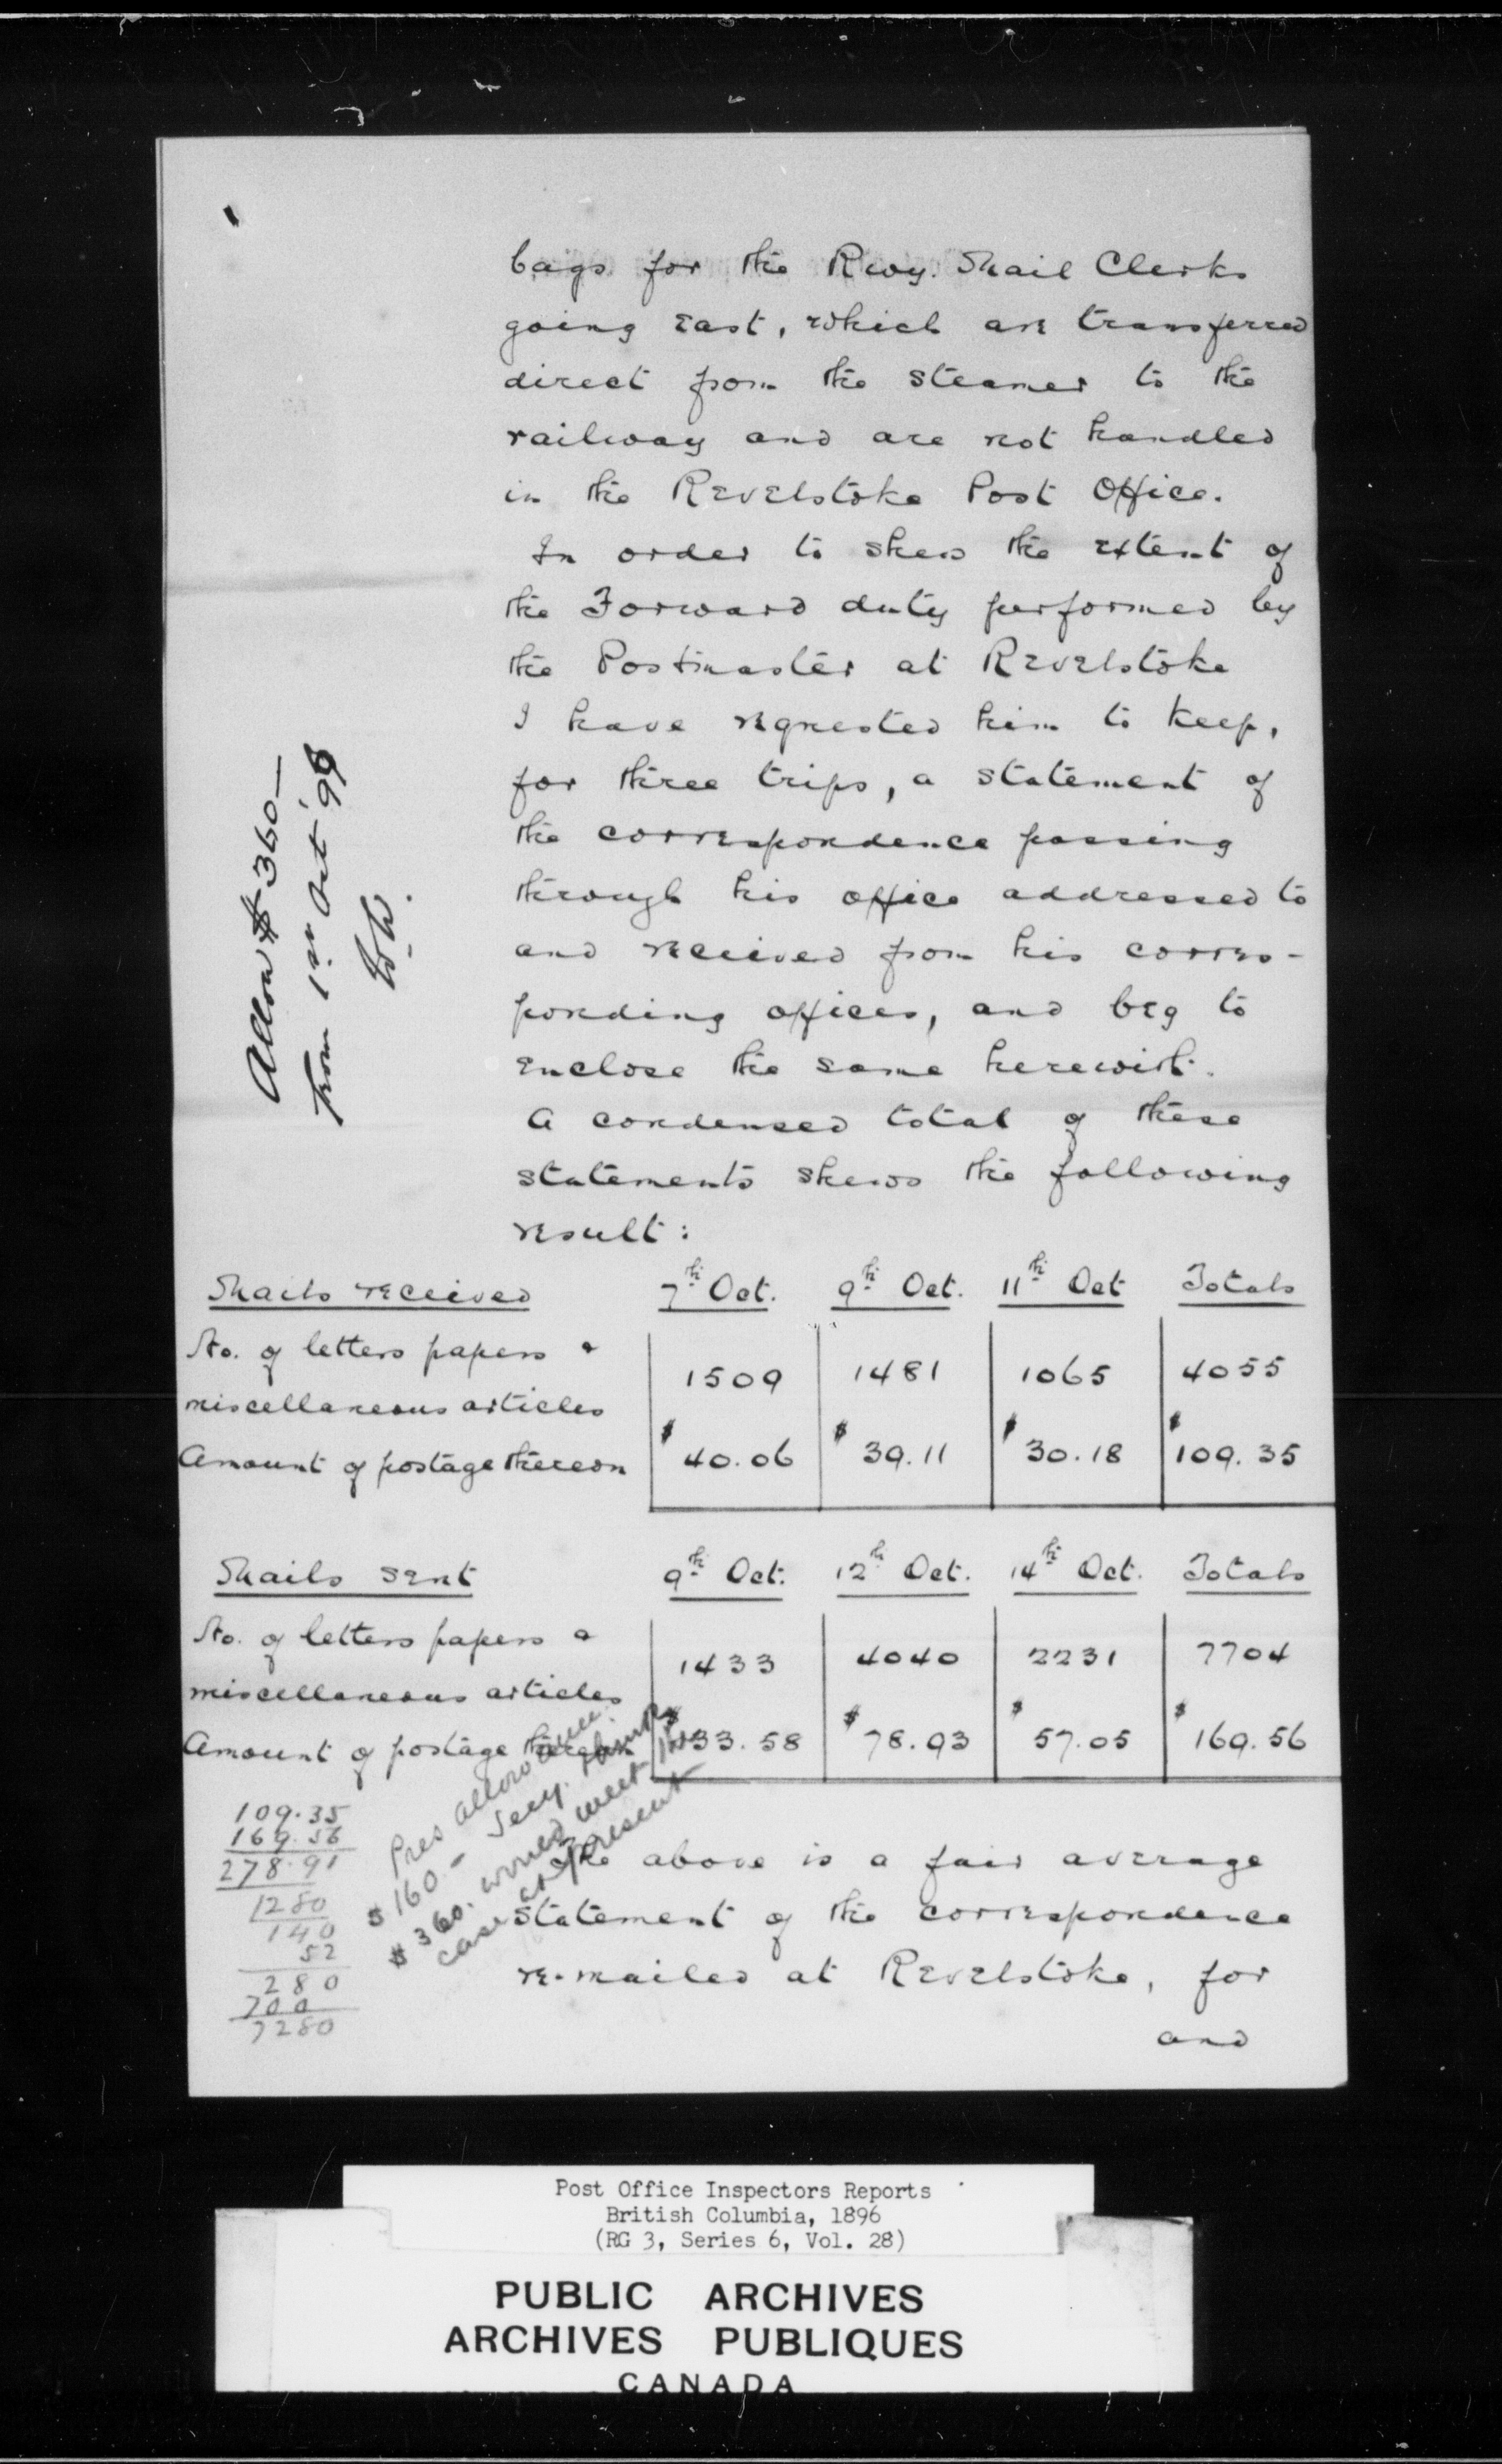 bags for the Rwy. Mail Clerks
going East, which are transferred
direct from the steamer to the
railway and are not handled
in the Revelstoke Post Office.
In order to shew the extent of
the Forward duty performed by
the Postmaster at Revelstoke
I have requested him to keep,
for three trips, a statement of
the correspondence passing
through his office addressed to
and received from his corres-
ponding offices, and beg to
enclose the same herewith.
A condensed total of these
statements shews the following
result:
Allow $360—
from 1st Oct '96
Mails received 7th Oct. 9th Oct. 11th Oct Totals
No. of letters papers &
miscellaneous articles 1509 1481 1065 4055
Amount of postage thereon $40.06 $39.11 $30.18 $109.35
Mails sent 9th Oct. 12th Oct. 14th Oct. Totals
No. of letters papers &
miscellaneous articles 1433 4040 2231 7704
Amount of postage thereon $33.58 $78.93 $57.05 $169.56
109.35
169.56
278.91
1280
140
52
280
700
7280
Pres allowance
$160.- Secy. thinks
$360. would meet the
case at present
The above is a fair average
statement of the correspondence
re-mailed at Revelstoke, for
and
Post Office Inspectors Reports
British Columbia, 1896
(RG 3, Series 6, Vol. 28)
PUBLIC ARCHIVES
ARCHIVES PUBLIQUES
CANADA